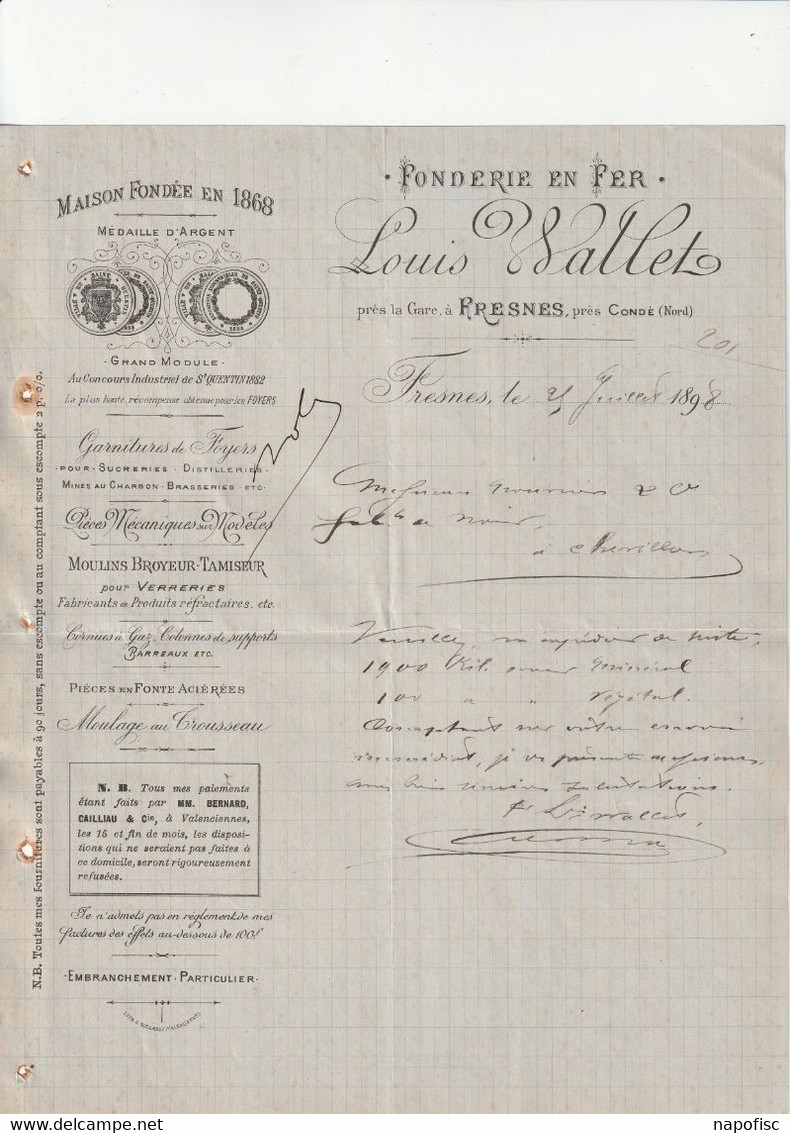 MAISON FONDÉE EN 1868
MÉDAILLE D'ARGENT
GRAND MODULE
Au Concours Industriel de St QUENTIN 1882
La plus haute récompense obtenue pour les FOYERS
Garnitures de Foyers
POUR · SUCRERIES · DISTILLERIES
MINES AU CHARBON · BRASSERIES · ETC·
Pièces Mécaniques sur Modèles
MOULINS BROYEUR-TAMISEUR
POUR VERRERIES
Fabricants de Produits réfractaires, etc.
Cornues à Gaz, Colonnes de supports
BARREAUX ETC.
PIÈCES EN FONTE ACIÉRÉES
Moulage au Trousseau
N. B. Tous mes paiements
étant faits par MM. BERNARD,
CAILLIAU & Cie, à Valenciennes,
les 15 et fin de mois, les disposi-
tions qui ne seraient pas faites à
ce domicile, seront rigoureusement
refusées.
Je n'admets pas en règlement de mes
factures des effets au-dessous de 100f
·EMBRANCHEMENT · PARTICULIER·
N.B. Toutes mes fournitures sont payables à 90 jours, sans escompte ou au comptant sous escompte 2 p. o/o.
· FONDERIE EN FER ·
Louis Wallet
près la Gare, à FRESNES, près CONDÉ (Nord)
201
Fresnes, le 25 Juillet 1898
Messieurs & Cie
à
Veuillez, m'expédier de suite,
1900 Kil. noir minéral
100 " " végétal.
Comptant sur votre envoi
immédiat, je vs présente messieurs,
mes salutations.
Pr Ls Wallet,
napofisc